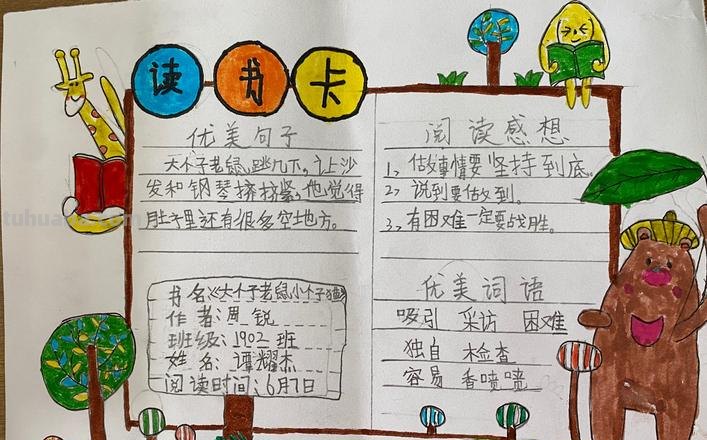 读书卡
优美句子
大个子老鼠跳几下,让沙
发和钢琴挤挤紧,他觉得
肚子里还有很多空地方。
书名:《大个子老鼠小个子猫》
作者:周锐
班级:1902班
姓名:谭耀杰
阅读时间:6月7日
阅读感想
1、做事情要坚持到底。
2、说到要做到。
3、有困难一定要战胜。
优美词语
吸引 采访 困难
独自 检查
容易 香喷喷